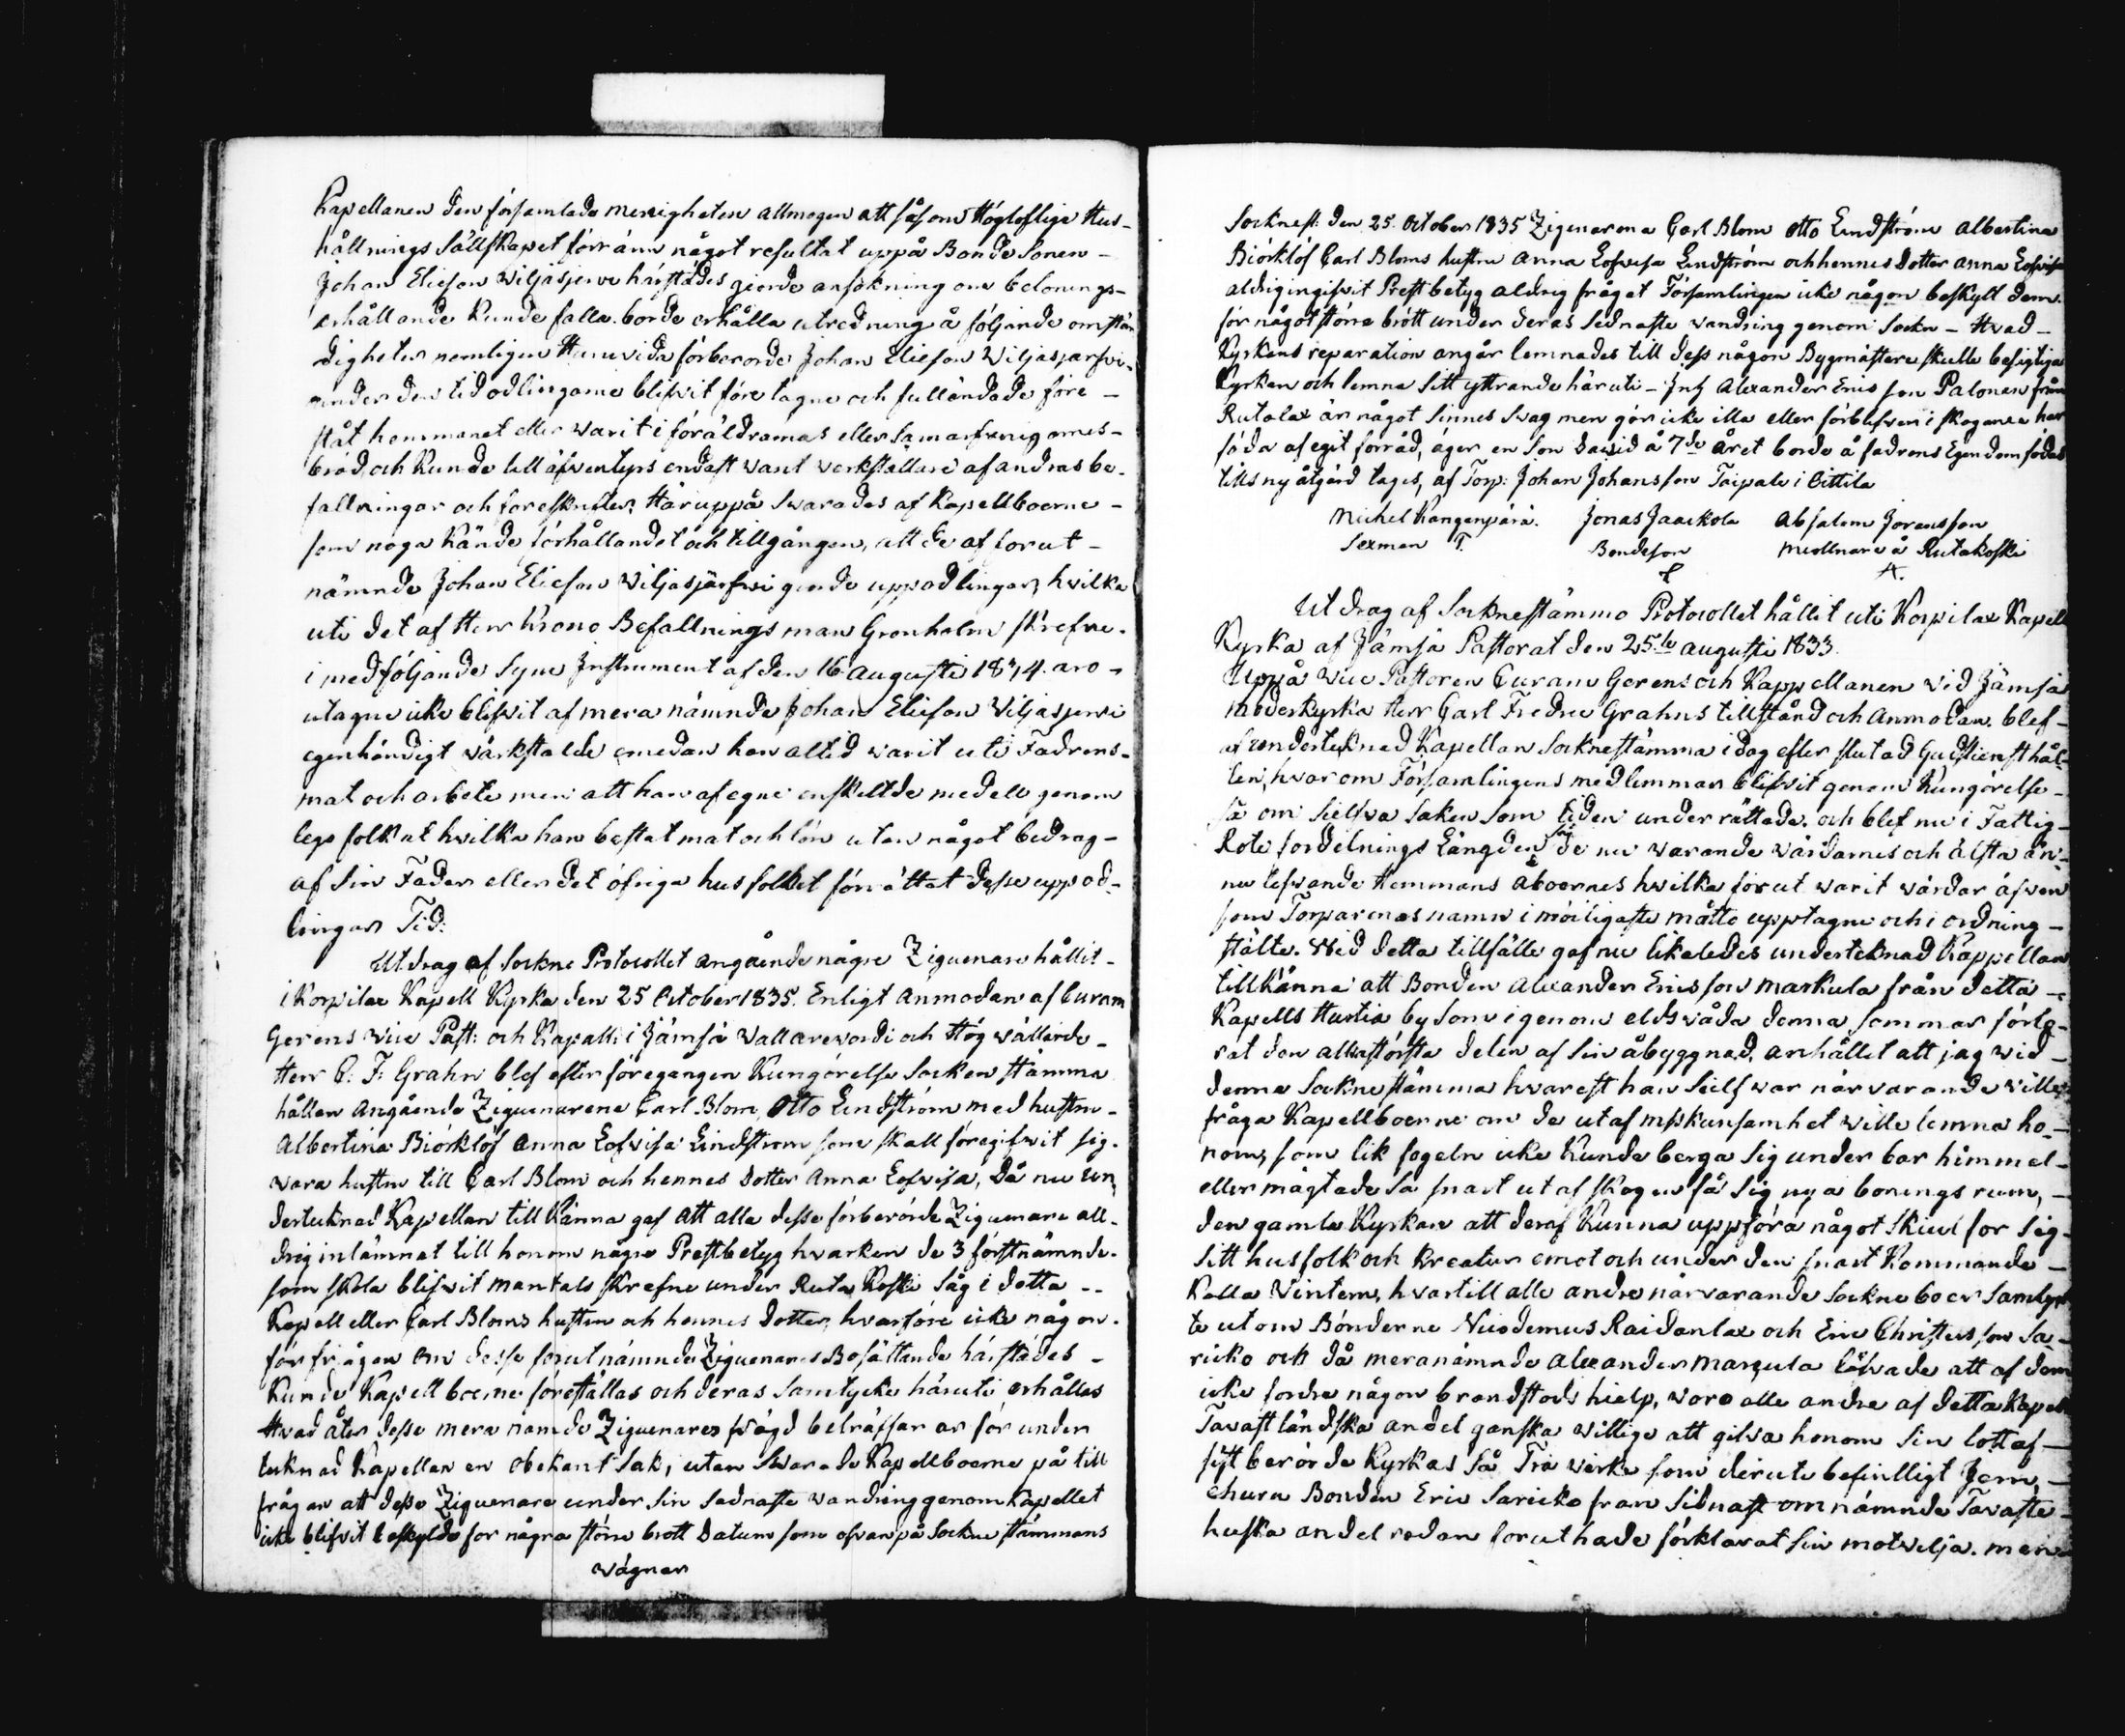 Kapellanen den församlade menigheten allmogen att såsom Högloflige Hus-
hållnings Sällskapet förränn något resultat uppå Bonde Sonen -
Johan Eliesson Wiljasjerve härstädes gjorde ansökning om belonings-
erhållande kunde falla. borde erhålla utredning å följande omstän
digheter nemligen Huruvida förberorde Johan Eliesson Wiljasjarfvi-
under den tid odlingarne blifvit före tagne och fulländade före -
ståt hemmanet eller warit i föräldrarnas eller
bröd, och kunde till äfventyrs endast varit verkställare af andras be-
fallningar och foreskrifter, Häruppå Swarades af Kapellboerne -
som noga kände förhållandet och tillgången, att de af forut -
nämnde Johan Elieson Wiljasjärfwi giorde uppodlingar, hvilka
uti det af Herr Krono Befallningsman Gronholm skrefne.
i medföljande Syne Instrument af den 16 Augusti 1834. aro -
utagne icke blifvit af mera nämnde Johan Eliefon Wiljasjerwi
egenhändigt wärkstälde emedan han altid warit uti Fadrens-
mat och arbete men att han af egne enskildte medell genom
lego folk at hvilka han bestat mat och lön utan något bedrag -
af Sin Fader eller det öfriga husfolket förrättat desse uppod-
lingar Tid:
Utdrag af Sockne Protocollet angående någre Ziguenare hållit -
i Korpilax Kapell Kyrka den 25 October 1835. Enligt anmodan af Curam
Gerens Vice Past: och Kapell: i Jämsä Wallärewordi och Hög wällärde -
Herr C: F: Grahn blef efter föregången Kungörelse Socken stämma
hållen angående Ziguenarene Carl Blom, Otto Lindström med hustru -
Albertina Biörklöf Anna Lofvisa Lindstrom som skall föregifwit sig.
vara hustru till Carl Blom och hennes dotter Anna Lofvisa, Då nu un
dertecknad Kapellan till Känna gaf att alla desse förberörde Ziguenare all-
drig inlämnat till honom någre Prestbetyg hvarken de 3 förstnämnde.
som skola blifvit mantals skrefne under Ruta Koski Såg i detta --
Kapell eller Carl Bloms hustru och hennes dotter, hvarföre icke någon.
förfrågan om desse forutnämnde Ziguenares Bosättande härstädes -
kunde Kapellboerne föreställas och deras Samtycke häruti erhållas
Hvad åter desse mera namde Ziguenares frägd beträffar är för under
tecknad Kapellan en obekant Sak, utan Swarade Kapellboerne på till
frågan att desse Ziguenare under Sin Sednaste vandring genom Kapellet
icke blifvit beskylde for några större brott Datum som ofvan på Sockne stämmans
vägnar
Socknest: den 25. October 1835 Zigenarena Carl Blom Otto Lindström Albertina
Biörklöf Carl Bloms hustru Anna Lofvisa Lindström och hennes Dotter Anna Lofvisa
aldrig ingifvit Prestbetyg aldrig fråget Församlingen icke någon beskylt dem.
för något större brött under deras sednaste vandring genom Sockn - Hvad -
Kyrkans reparation angår lemnades till dess någon Bygmästare skulle besigtiga
Kyrkan och lemna Sitt yttrande häruti - Inh Alexander Ericsson Palonen från
Rutalax är något Sinnes Swag men gör icke illa eller förblifver i skogarna har
föda af egit förråd, äger en Son David å 7de året borde å fadrens Egendom födas
tills ny åtgärd tages, af Torp: Johan Johansson Taipale i Cittila
Michel Kangenpärä. Jonas Jaackola Absalom Joransson
Sexman T. Bondeson Meollnare å Rutakoski
Utdrag af Socknestämmo Protocollet hållit uti Korpilax Kapell
Kyrka af Jämsä Pastorat den 25.te Augusti 1833.
Uppå Vice Pastoren Curam Gerens och Kappellanen vid Jämsä
moderkyrka Herr Carl Fredric Grahns tillstånd och anmodan, blef -
af undertecknad Kapellan Socknestämma i dag efter slutad Gudstienst hål-
len, hvarom Församlingens medlemmar blifvit genom Kungörelse -
så om Sielfva Saken som tiden underrättade. och blef nu i Fattig-
Rote fordelnings Längden så de nu warande wärdarnes och älsta än-
nu lefvande Hemmans Aboernes hwilka förut varit värdar äfven
som Torparenas namn i möiligaste mätto upptagne och i ordning -
stälte. Wid detta tillfälle gaf nu likaledes undertecknad Kappellan
tillkänna att Bonden Alexander Ericsson Markula från detta -
Kapells Hurtia by som igenom eldswåda denna Sommar förlo-
rat den allrastörsta delen af Sin åbyggnad, anhållet att jag wid -
denna Socknestämma hvarest han Sielf war närvarande ville
fråga Kapellboerne om de utaf miskunsamhet wille lemna ho-
nom, som lik fogeln icke kunde berga Sig under bar himmel -
eller mägtade så snart ut af skogen få Sig nya boningsrum, -
den gamla Kyrkan att deraf kunna uppföra något skiul for Sig -
Sitt husfolk och kreatur emot och under den snart kommande -
kalla Wintern, hvartill alle andre närvarande Sockneboer Samtyck
te utom Bönderne Nicodemus Raidanlax och Eric Christersson Sa-
ricko och då meranämnde Alexander Marcula låfvade att af dem
icke fordra någon brandstods hielp, woro alle andre af detta Kapell
Tavastländska andel ganska willige att gifva honom Sin lott af -
sist berörde Kyrkas Så Trä wirke som deruti befintligt Jern, -
churu Bonden Eric Saricko fran Sidnast omnämnde Tavaste
huska andel redan forut hade förklarat Sin motvilja. men